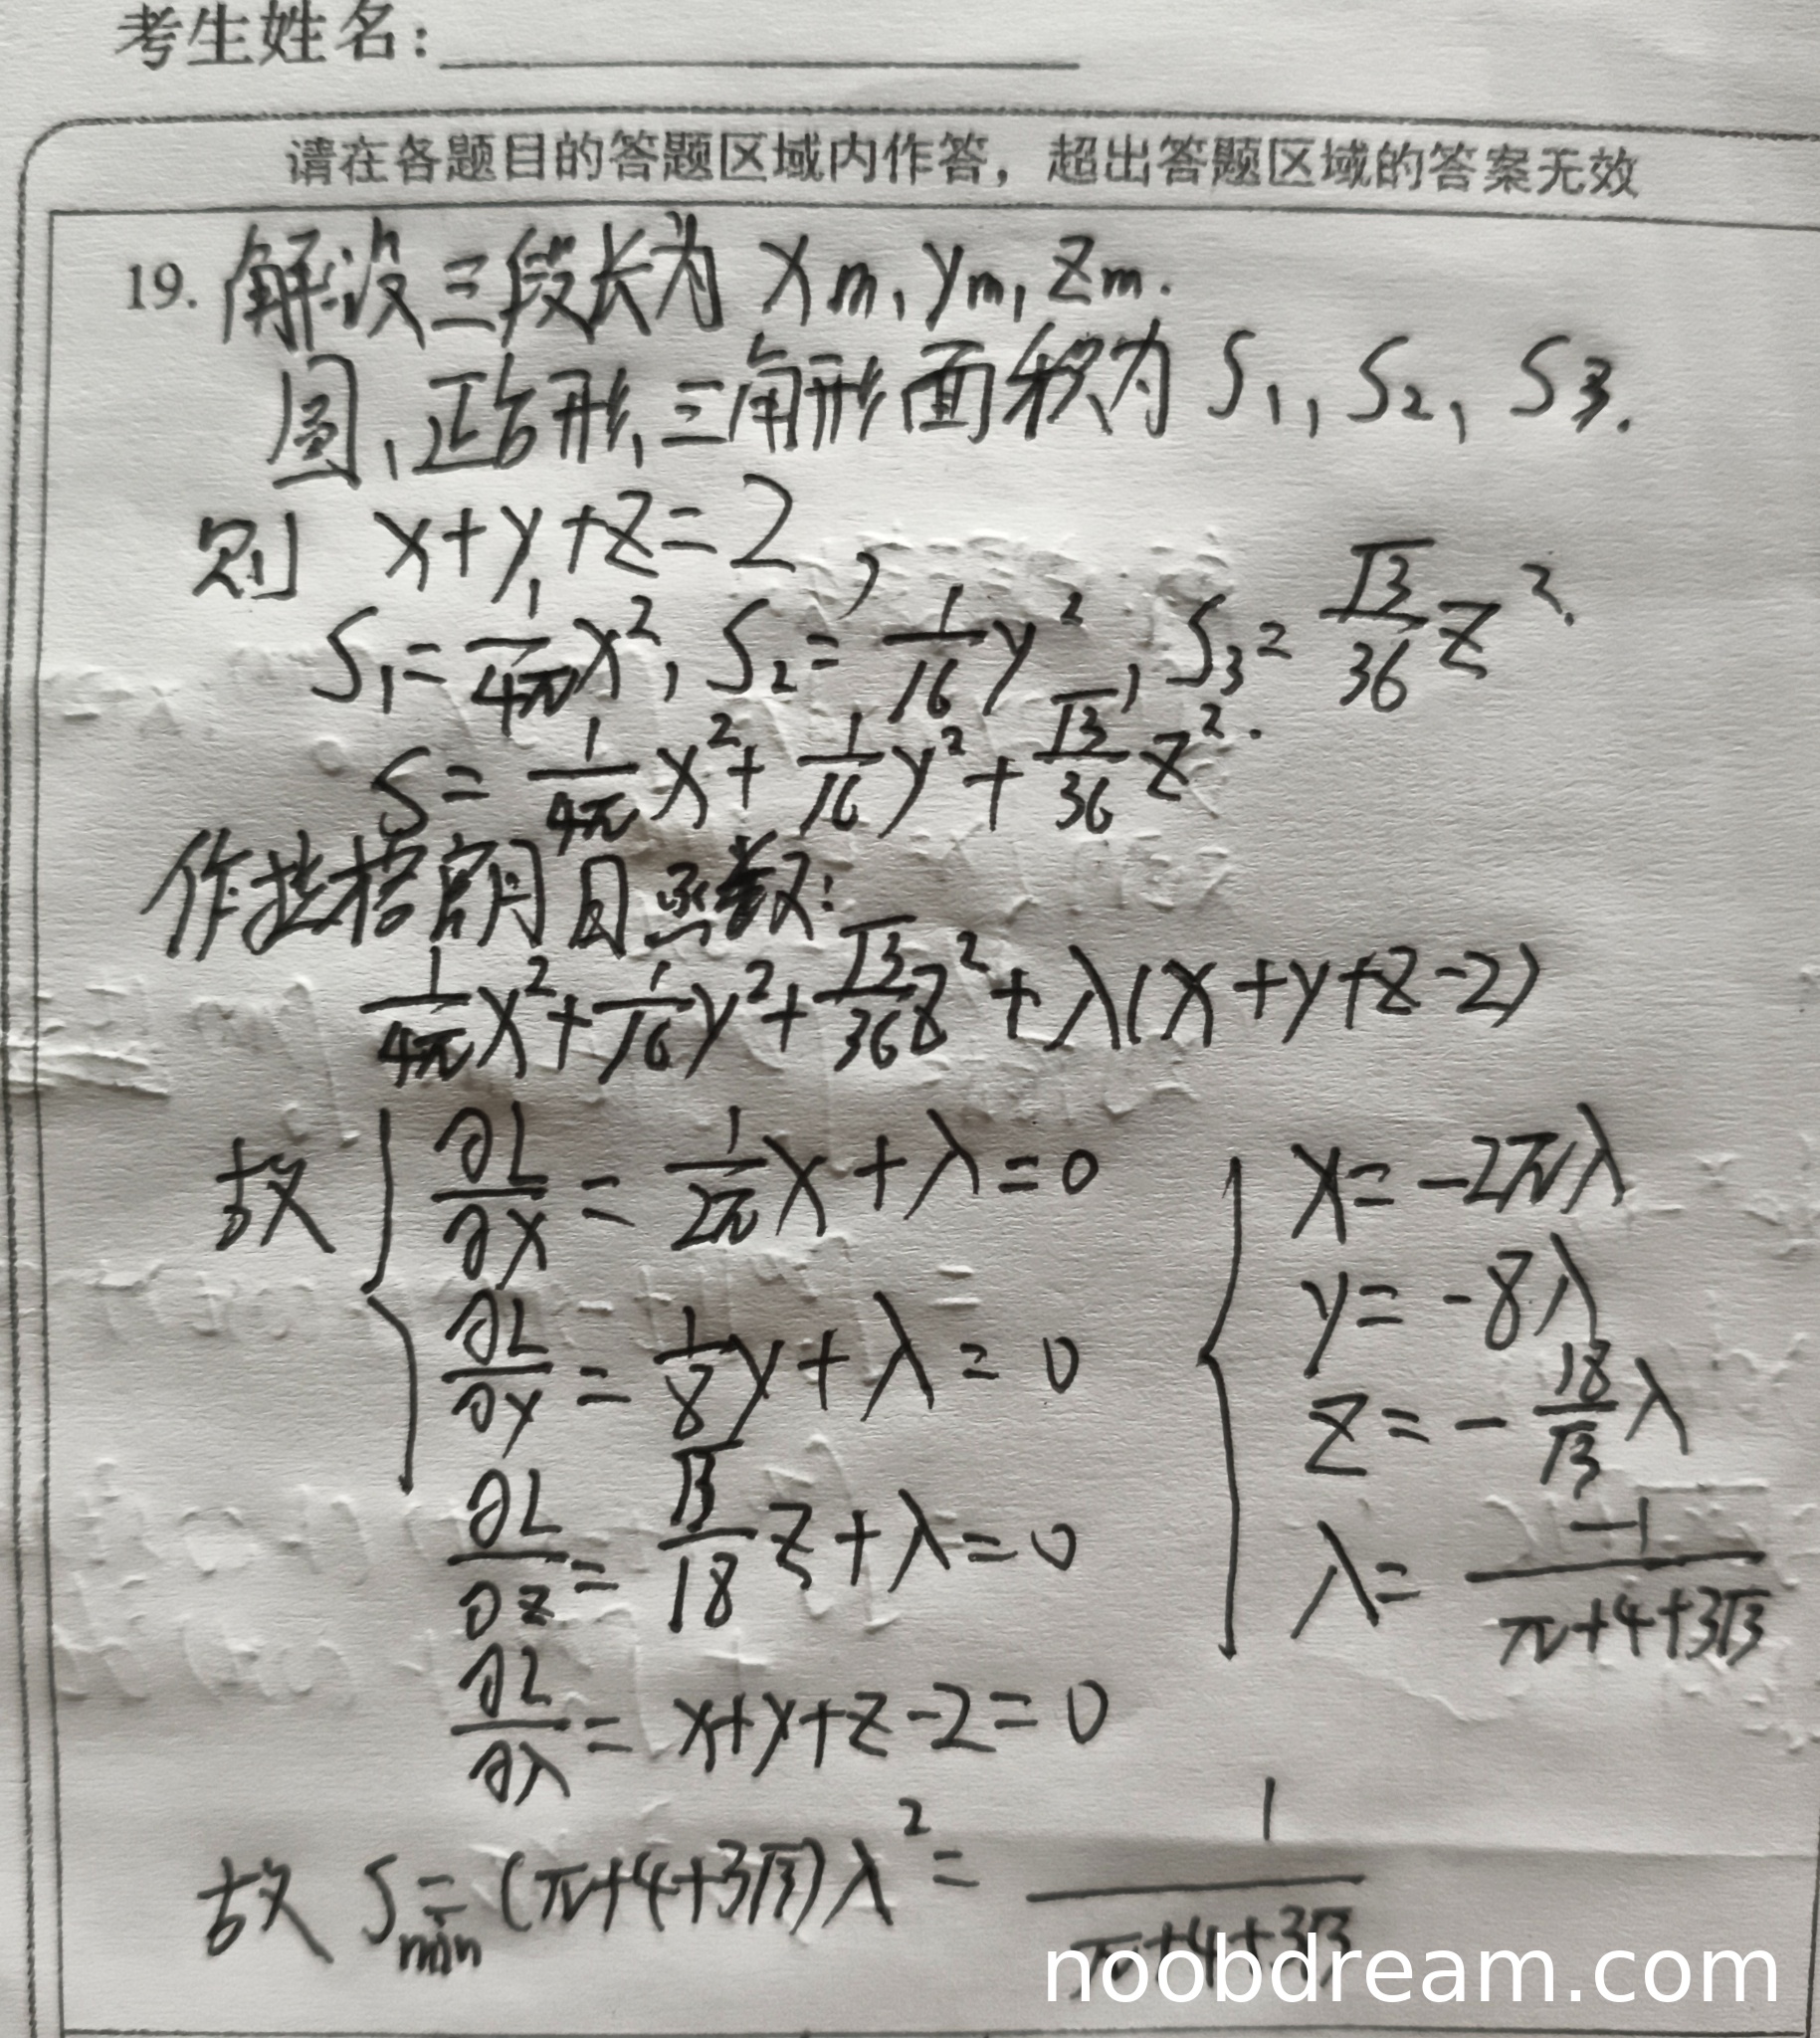 考生姓名:
请在各题目的答题区域内作答，超出答题区域的答案无效
19. 解设三段长为 xm, ym, zm.
圆, 正方形, 三角形面积为 S₁, S₂, S₃.
则 x+y+z=2,
S₁=1/(4π)x², S₂=1/16 y², S₃=√3/36 z².
S=1/(4π)x²+1/16 y²+√3/36 z².
作拉格朗日函数:
1/(4π)x²+1/16 y²+√3/36 z²+λ(x+y+z-2)
故 { ∂L/∂x=1/(2π)x+λ=0
∂L/∂y=1/8 y+λ=0
∂L/∂z=√3/18 z+λ=0
∂L/∂λ=x+y+z-2=0
{ x=-2πλ
y=-8λ
z=-18/√3 λ
λ=-1/(π+4+3√3)
故 Smin=(π+4+3√3)λ²=1/(π+4+3√3)
noobdream.com